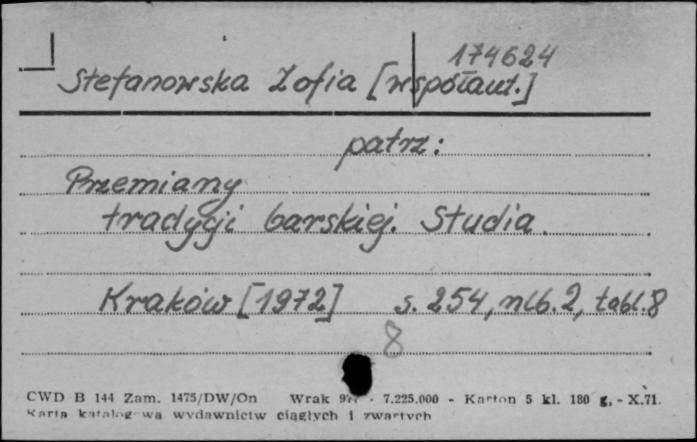 174624
Stefanowska Zofia [współaut.]
patrz:
Przemiany
tradycji barskiej. Studia.
Kraków [1972] s. 254, nlb. 2, tabl. 8
8
CWD B 144 Zam. 1475/DW/On Wrak - 7.225.000 - Karton 5 kl. 180 g. - X.71.
Karta katalogowa wydawnictw ciągłych i zwartych